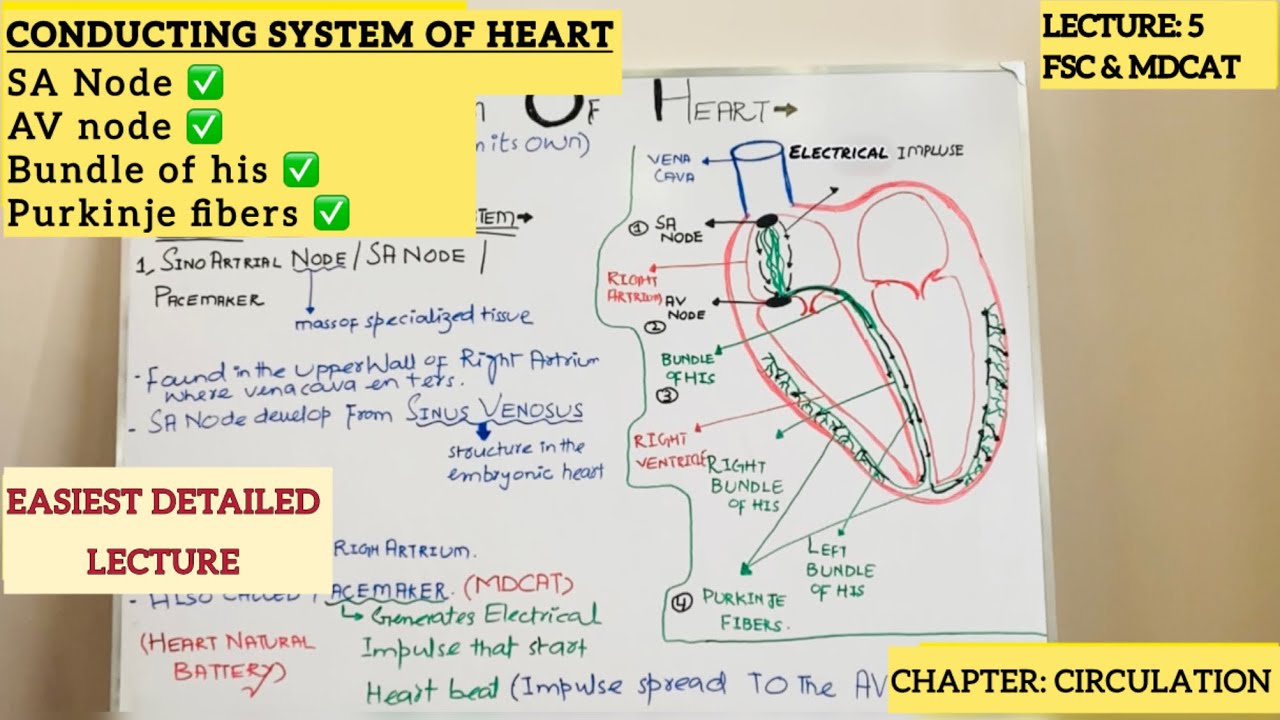 CONDUCTING SYSTEM OF HEART
SA Node ✅
AV node ✅
Bundle of his ✅
Purkinje fibers ✅
LECTURE: 5
FSC & MDCAT
OF HEART
its own)
STEM
1, SINOARTRIAL NODE / SA NODE /
PACEMAKER
mass of specialized tissue
- Found in the upper wall of Right Artrium
where venacava enters.
- SA Node develop from SINUS VENOSUS
structure in the
embryonic heart
EASIEST DETAILED
LECTURE
RIGH ARTRIUM.
- ALSO CALLED PACEMAKER. (MDCAT)
Generates Electrical
Impulse that start
Heart beat (Impulse spread TO The AV
(HEART NATURAL
BATTERY)
VENA
CAVA
ELECTRICAL IMPLUSE
① SA
NODE
RIGHT
ARTRIUM
AV
NODE
②
BUNDLE
OF HIS
③
RIGHT
VENTRICLE
RIGHT
BUNDLE
OF HIS
LEFT
BUNDLE
OF HIS
④ PURKINJE
FIBERS.
CHAPTER: CIRCULATION